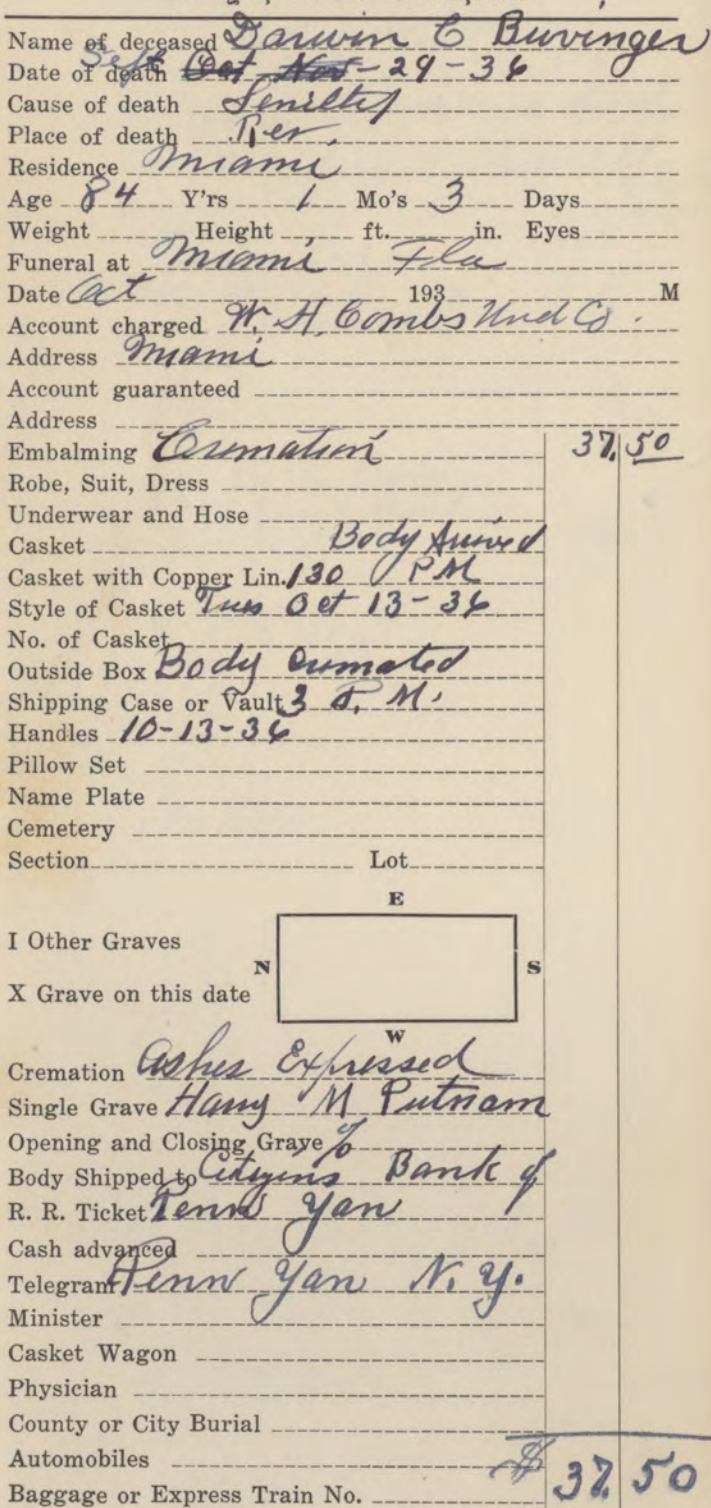 Name of deceased Darwin C Buvinger
Date of death Sept Oct Nov - 29 - 36
Cause of death Senility
Place of death Res.
Residence Miami
Age 84 Y'rs 1 Mo's 3 Days
Weight Height ft. in. Eyes
Funeral at Miami Fla
Date Oct 193 M
Account charged W. H. Combs Und Co.
Address Miami
Account guaranteed
Address
Embalming Cremation 37.50
Robe, Suit, Dress
Underwear and Hose
Casket Body Arrived
Casket with Copper Lin. 130 P M
Style of Casket Tues Oct 13 - 36
No. of Casket
Outside Box Body Cremated
Shipping Case or Vault 3 P. M.
Handles 10-13-36
Pillow Set
Name Plate
Cemetery
Section Lot
E
I Other Graves
N S
X Grave on this date
W
Cremation Ashes Expressed
Single Grave Harry M Putnam
Opening and Closing Grave %
Body Shipped to Citizens Bank of
R. R. Ticket Penn Yan
Cash advanced
Telegram Penn Yan N. Y.
Minister
Casket Wagon
Physician
County or City Burial
Automobiles $ 37.50
Baggage or Express Train No.